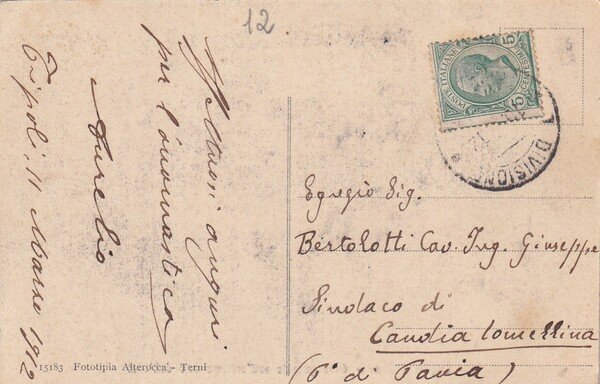 12
Affettuosi auguri
per l'onomastico
Aurelio
Tripoli, 11 Marzo 1912
POSTE ITALIANE
CENTESIMI
5
DIVISIONE
12
Egregio Sig.
Bertolotti Cav. Ing. Giuseppe
Sindaco di
Candia Lomellina
(Pª di Pavia)
15183 Fototipia Alterocca - Terni